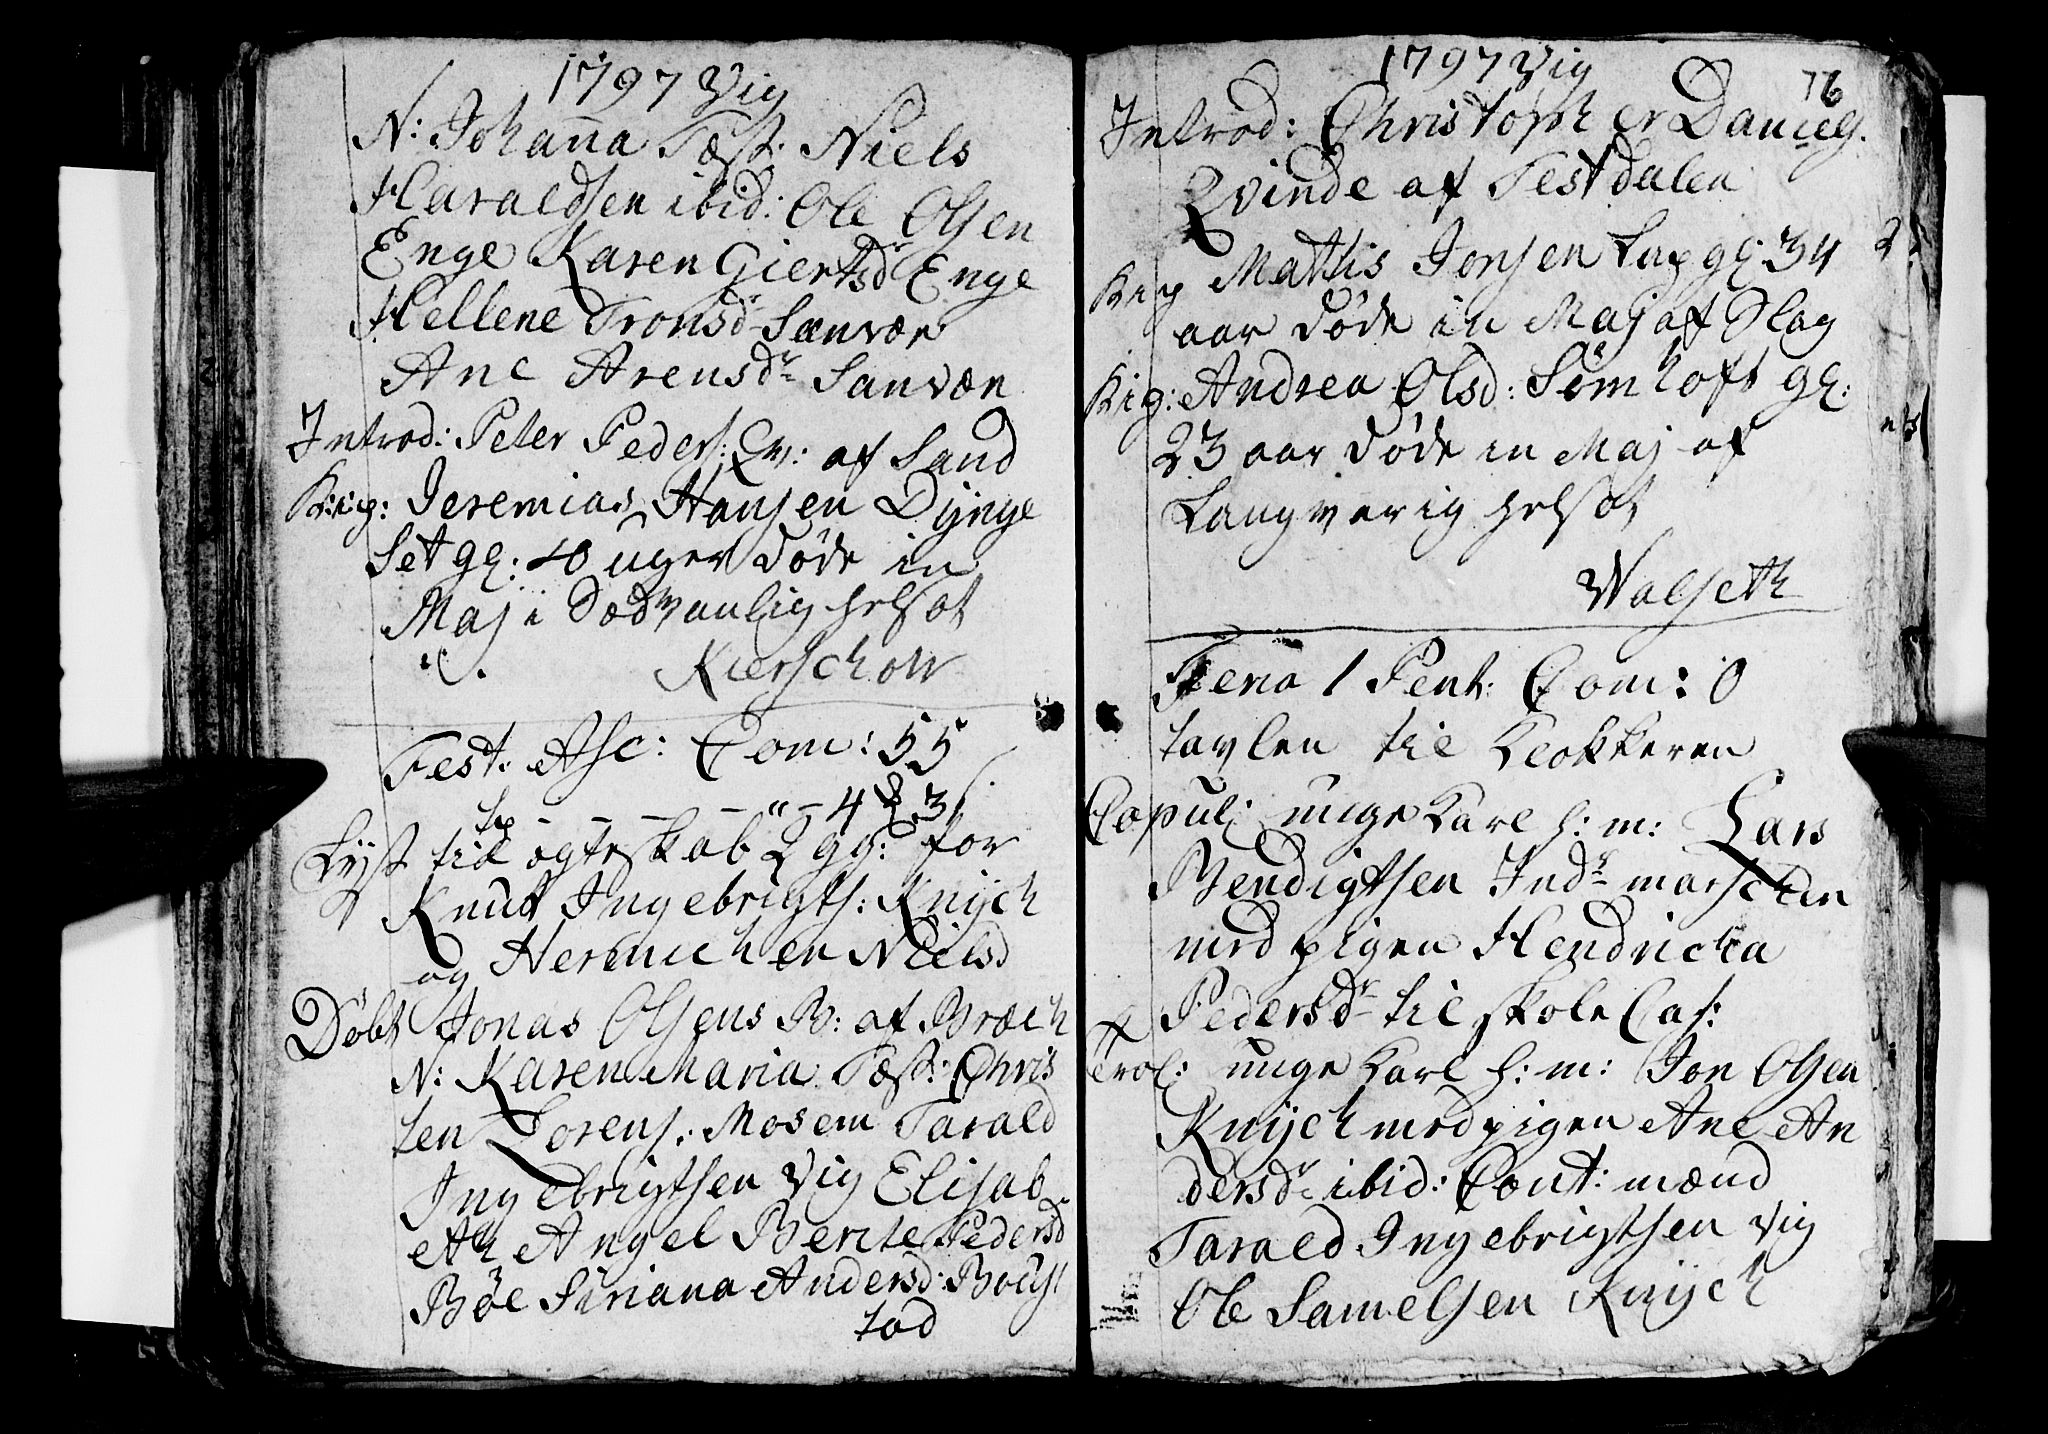 1797 Vig
N: Johanna Fæst. Niels
Haraldsen ibid: Ole Olsen
Enge Karen Giertsdr Enge
Hellene Tronsdr Sanvær
Ane Arensdr Sanvær
Introd: Peter Peders: Qv: af Sand
K:ig: Jeremias Hansen Dynge
Set gl: 10 uger døde in
Maj i Sædvanlig helsot
Kierschow
Fest. Asc: Com: 55
4 ß 3
Lyst til ægteskab 2 gg: for
Knut Ingebrigts: Knÿch
og Hermichen Nielsd
Døbt Jonas Olsens B: af Bræch
N: Karen Maria Fæst: Chris
ten Lorens. Mosem Tarald
Ingebrigtsen Vig Elisab
eth Angel Berete Pedersd
Böe Siriana Andersd:
tad
1797 Vig
76
Introd: Christopher Daniels.
Qvinde af Testdalen
Kig Mathis Jonsen Lap gl: 34
aar døde in Maj af Slag
Kig: Andrea Olsd: Sömhoft gl:
23 aar døde in Maj af
Langverig helsot
Walseth
Feria 1 Pent: Com: 0
tavlen til Klokkeren
Copul: unge Karl h: m: Lars
Bendigtsen Indr marschen
med pigen Hendricka
Pedersdr til skole Cas:
Trol: unge Karl h: m: Jon Olsen
Knÿch med pigen Ane An
dersdr ibid: Caut: mænd
Tarald Ingebrigtsen Vig
Ole Samelsen Knÿch